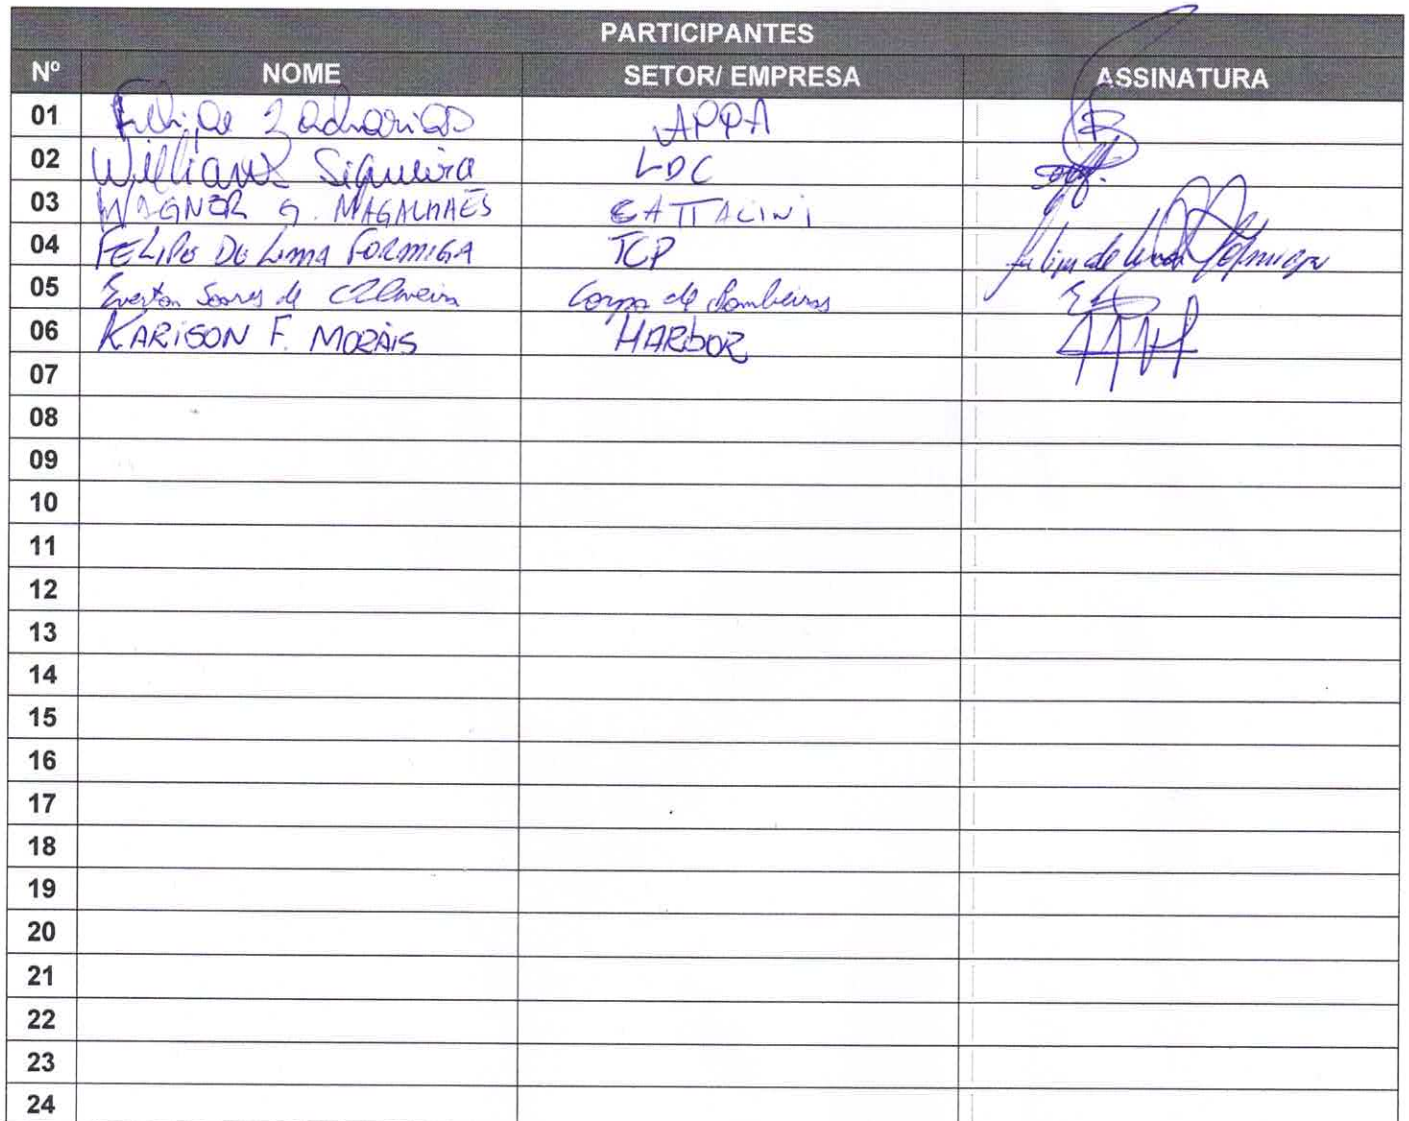 PARTICIPANTES
Nº NOME SETOR/ EMPRESA ASSINATURA
01 Felipe Zacharias APPA
02 Willians Siqueira LDC
03 WAGNER G. MAGALHAES CATTALINI
04 FELIPE DE LIMA FORMIGA TCP Felipe de Lima Formiga
05 Everton Soares de Oliveira Corpo de Bombeiros
06 KARISON F. MORAIS HARBOR
07
08
09
10
11
12
13
14
15
16
17
18
19
20
21
22
23
24